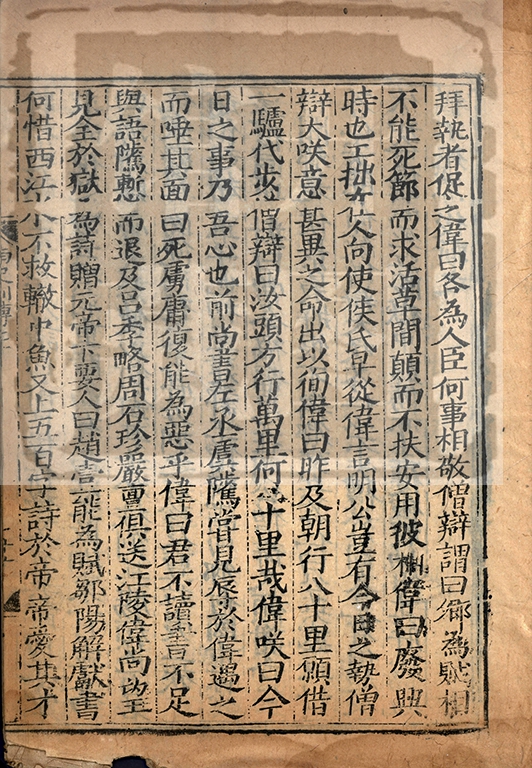 拜執者促之偉曰各為人臣何事相敬僧辯謂曰卿為賊相
不能死節而求活草間顛而不扶安用彼相偉曰廢興
時也工拙在人向使侯氏早從偉言明公豈有今日之執僧
辯大咲意甚異之命出以徇偉曰昨及朝行八十里願借
一驢代步僧辯曰汝頭方行萬里何八十里哉偉咲曰今
日之事乃吾心也前尚書左丞虞騭嘗見辱於偉遇之
而唾其面曰死虜庸復能為惡乎偉曰君不讀書不足
與語騭慙而退及呂季略周石珍嚴亶俱送江陵偉尚望
見全於獄為詩贈元帝下要人曰趙壹能為賦鄒陽解獻書
何惜西江水不救轍中魚又上五百字詩於帝帝愛其才